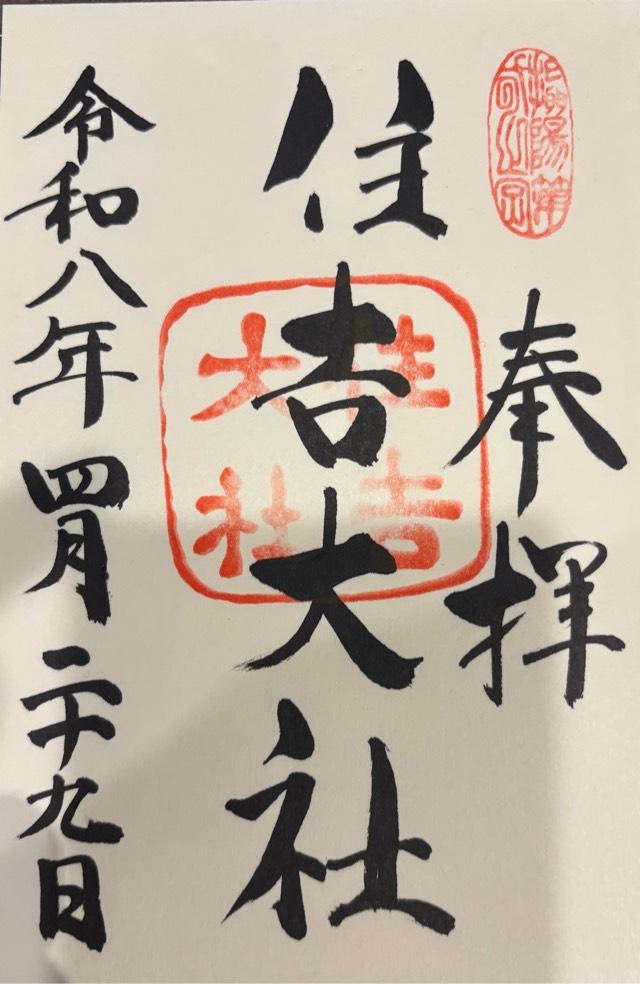 奉拝
住吉大社
住吉大社
令和八年四月二十九日